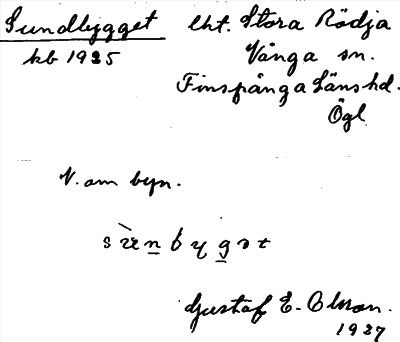 Sundbygget
kb 1925
lht. Stora Rödja
Vånga sn.
Finspånga Länshd.
Ögl.
N. om byn.
Gustaf E. Olsson.
1927